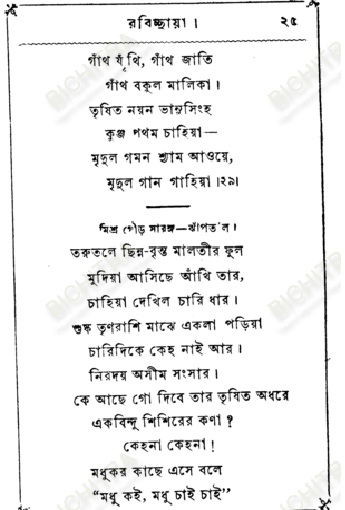 রবিচ্ছায়া। ২৫
গাঁথ যূঁথি, গাঁথ জাতি
গাঁথ বকুল মালিকা॥
তৃষিত নয়ন ভানুসিংহ
কুঞ্জ পথম চাহিয়া—
মৃদুল গমন শ্যাম আওয়ে,
মৃদুল গান গাহিয়া॥২৯।
মিশ্র গৌড় সারঙ্গ—ঝাঁপতাল।
তরুতলে ছিন্ন-বৃন্ত মালতীর ফুল
মুদিয়া আসিছে আঁখি তার,
চাহিয়া দেখিল চারি ধার।
শুষ্ক তৃণরাশি মাঝে একলা পড়িয়া
চারিদিকে কেহ নাই আর।
নিরদয় অসীম সংসার।
কে আছে গো দিবে তার তৃষিত অধরে
একবিন্দু শিশিরের কণা?
কেহনা কেহনা!
মধুকর কাছে এসে বলে
“মধু কই, মধু চাই চাই”
BICHITRA